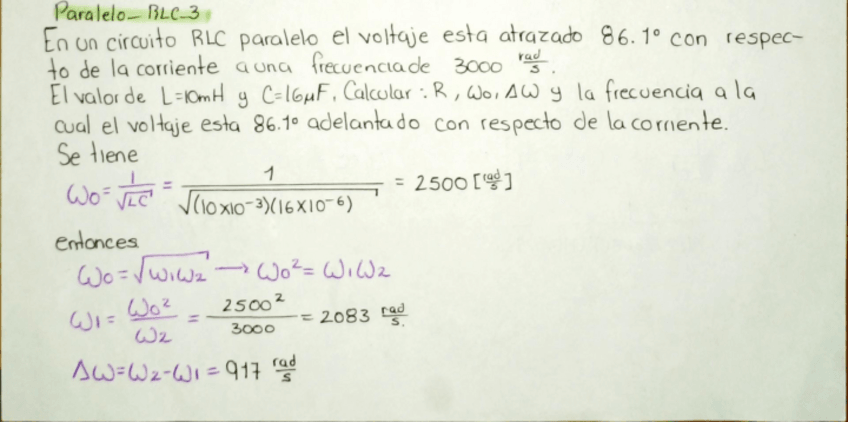 Paralelo - RLC_3
En un circuito RLC paralelo el voltaje esta atrazado 86.1° con respec-
to de la corriente a una frecuencia de 3000 rad/s.
El valor de L=10mH y C=16μF, Calcular: R, ω0, Δω y la frecuencia a la
cual el voltaje esta 86.1° adelantado con respecto de la corriente.
Se tiene
ω0 = 1/√LC = 1/√(10x10-3)(16x10-6) = 2500 [rad/s]
entonces
ω0 = √ω1ω2 → ω0² = ω1ω2
ω1 = ω0²/ω2 = 2500²/3000 = 2083 rad/s.
Δω = ω2 - ω1 = 917 rad/s